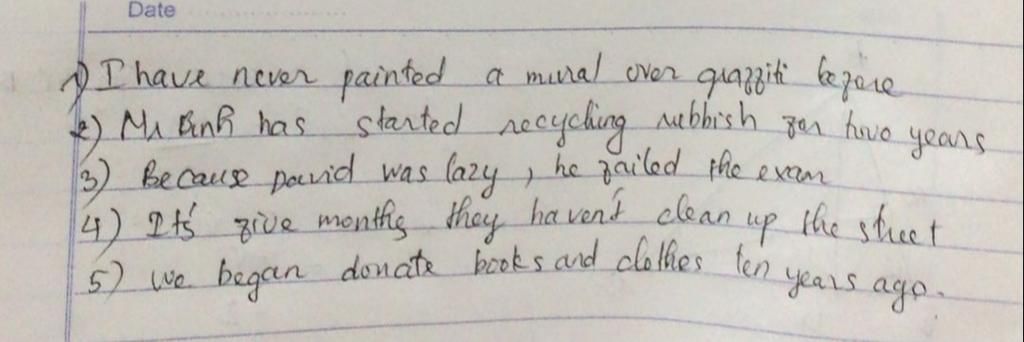 Date
1) I have never painted a mural over graffiti before
2) Mr Binh has started recycling rubbish for two years
3) Because David was lazy, he failed the exam
4) It's five months they haven't clean up the street
5) we began donate books and clothes ten years ago.